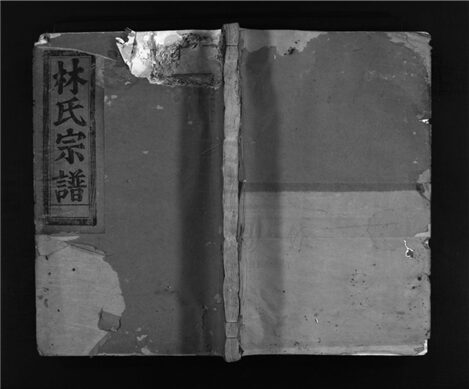 林氏宗譜